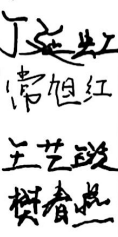 丁延虹
常旭红
王艺锬
樊春燕